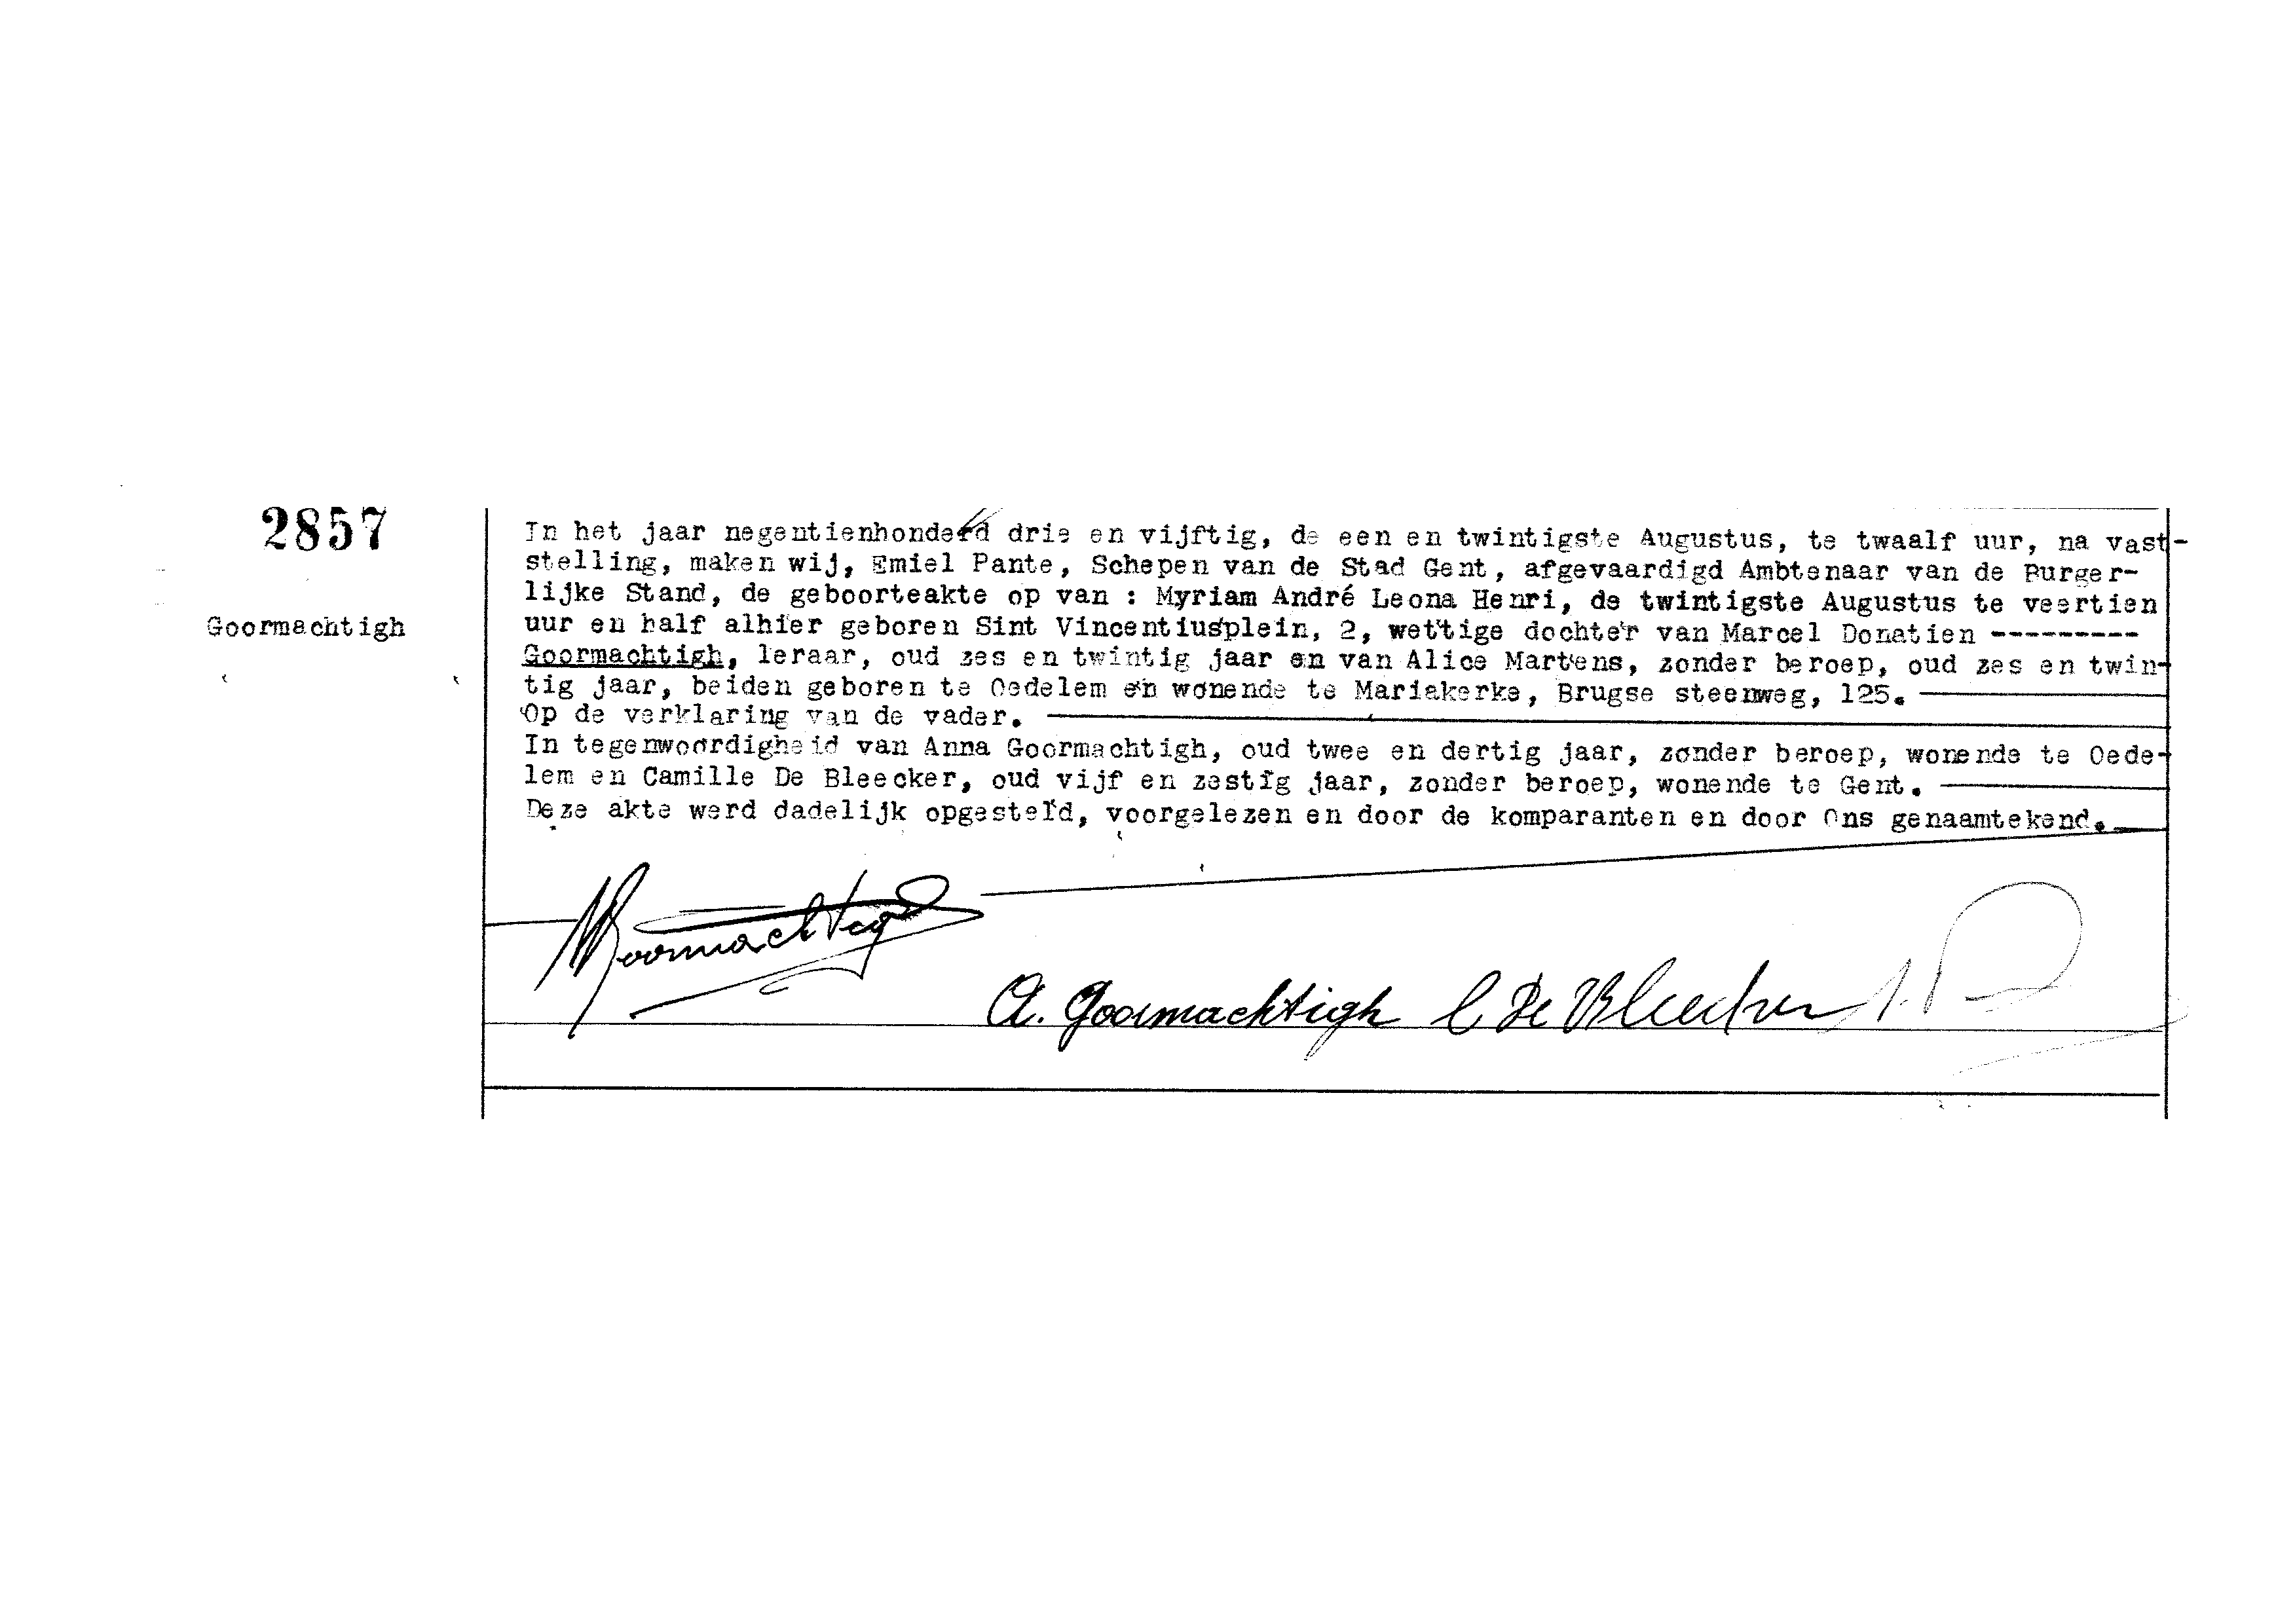 2857
Goormachtigh
In het jaar negentienhonderd drie en vijftig, de een en twintigste Augustus, te twaalf uur, na vast-
stelling, maken wij, Emiel Pante, Schepen van de Stad Gent, afgevaardigd Ambtenaar van de Burger-
lijke Stand, de geboorteakte op van : Myriam André Leona Henri, de twintigste Augustus te veertien
uur en half alhier geboren Sint Vincentiusplein, 2, wettige dochter van Marcel Donatien ---------
Goormachtigh, leraar, oud zes en twintig jaar en van Alice Martens, zonder beroep, oud zes en twin-
tig jaar, beiden geboren te Oedelem en wonende te Mariakerke, Brugse steenweg, 125.
Op de verklaring van de vader.
In tegenwoordigheid van Anna Goormachtigh, oud twee en dertig jaar, zonder beroep, wonende te Oede-
lem en Camille De Bleecker, oud vijf en zestig jaar, zonder beroep, wonende te Gent.
Deze akte werd dadelijk opgesteld, voorgelezen en door de komparanten en door Ons genaamtekend.
MGoormachtigh
A. Goormachtigh C De Bleecker